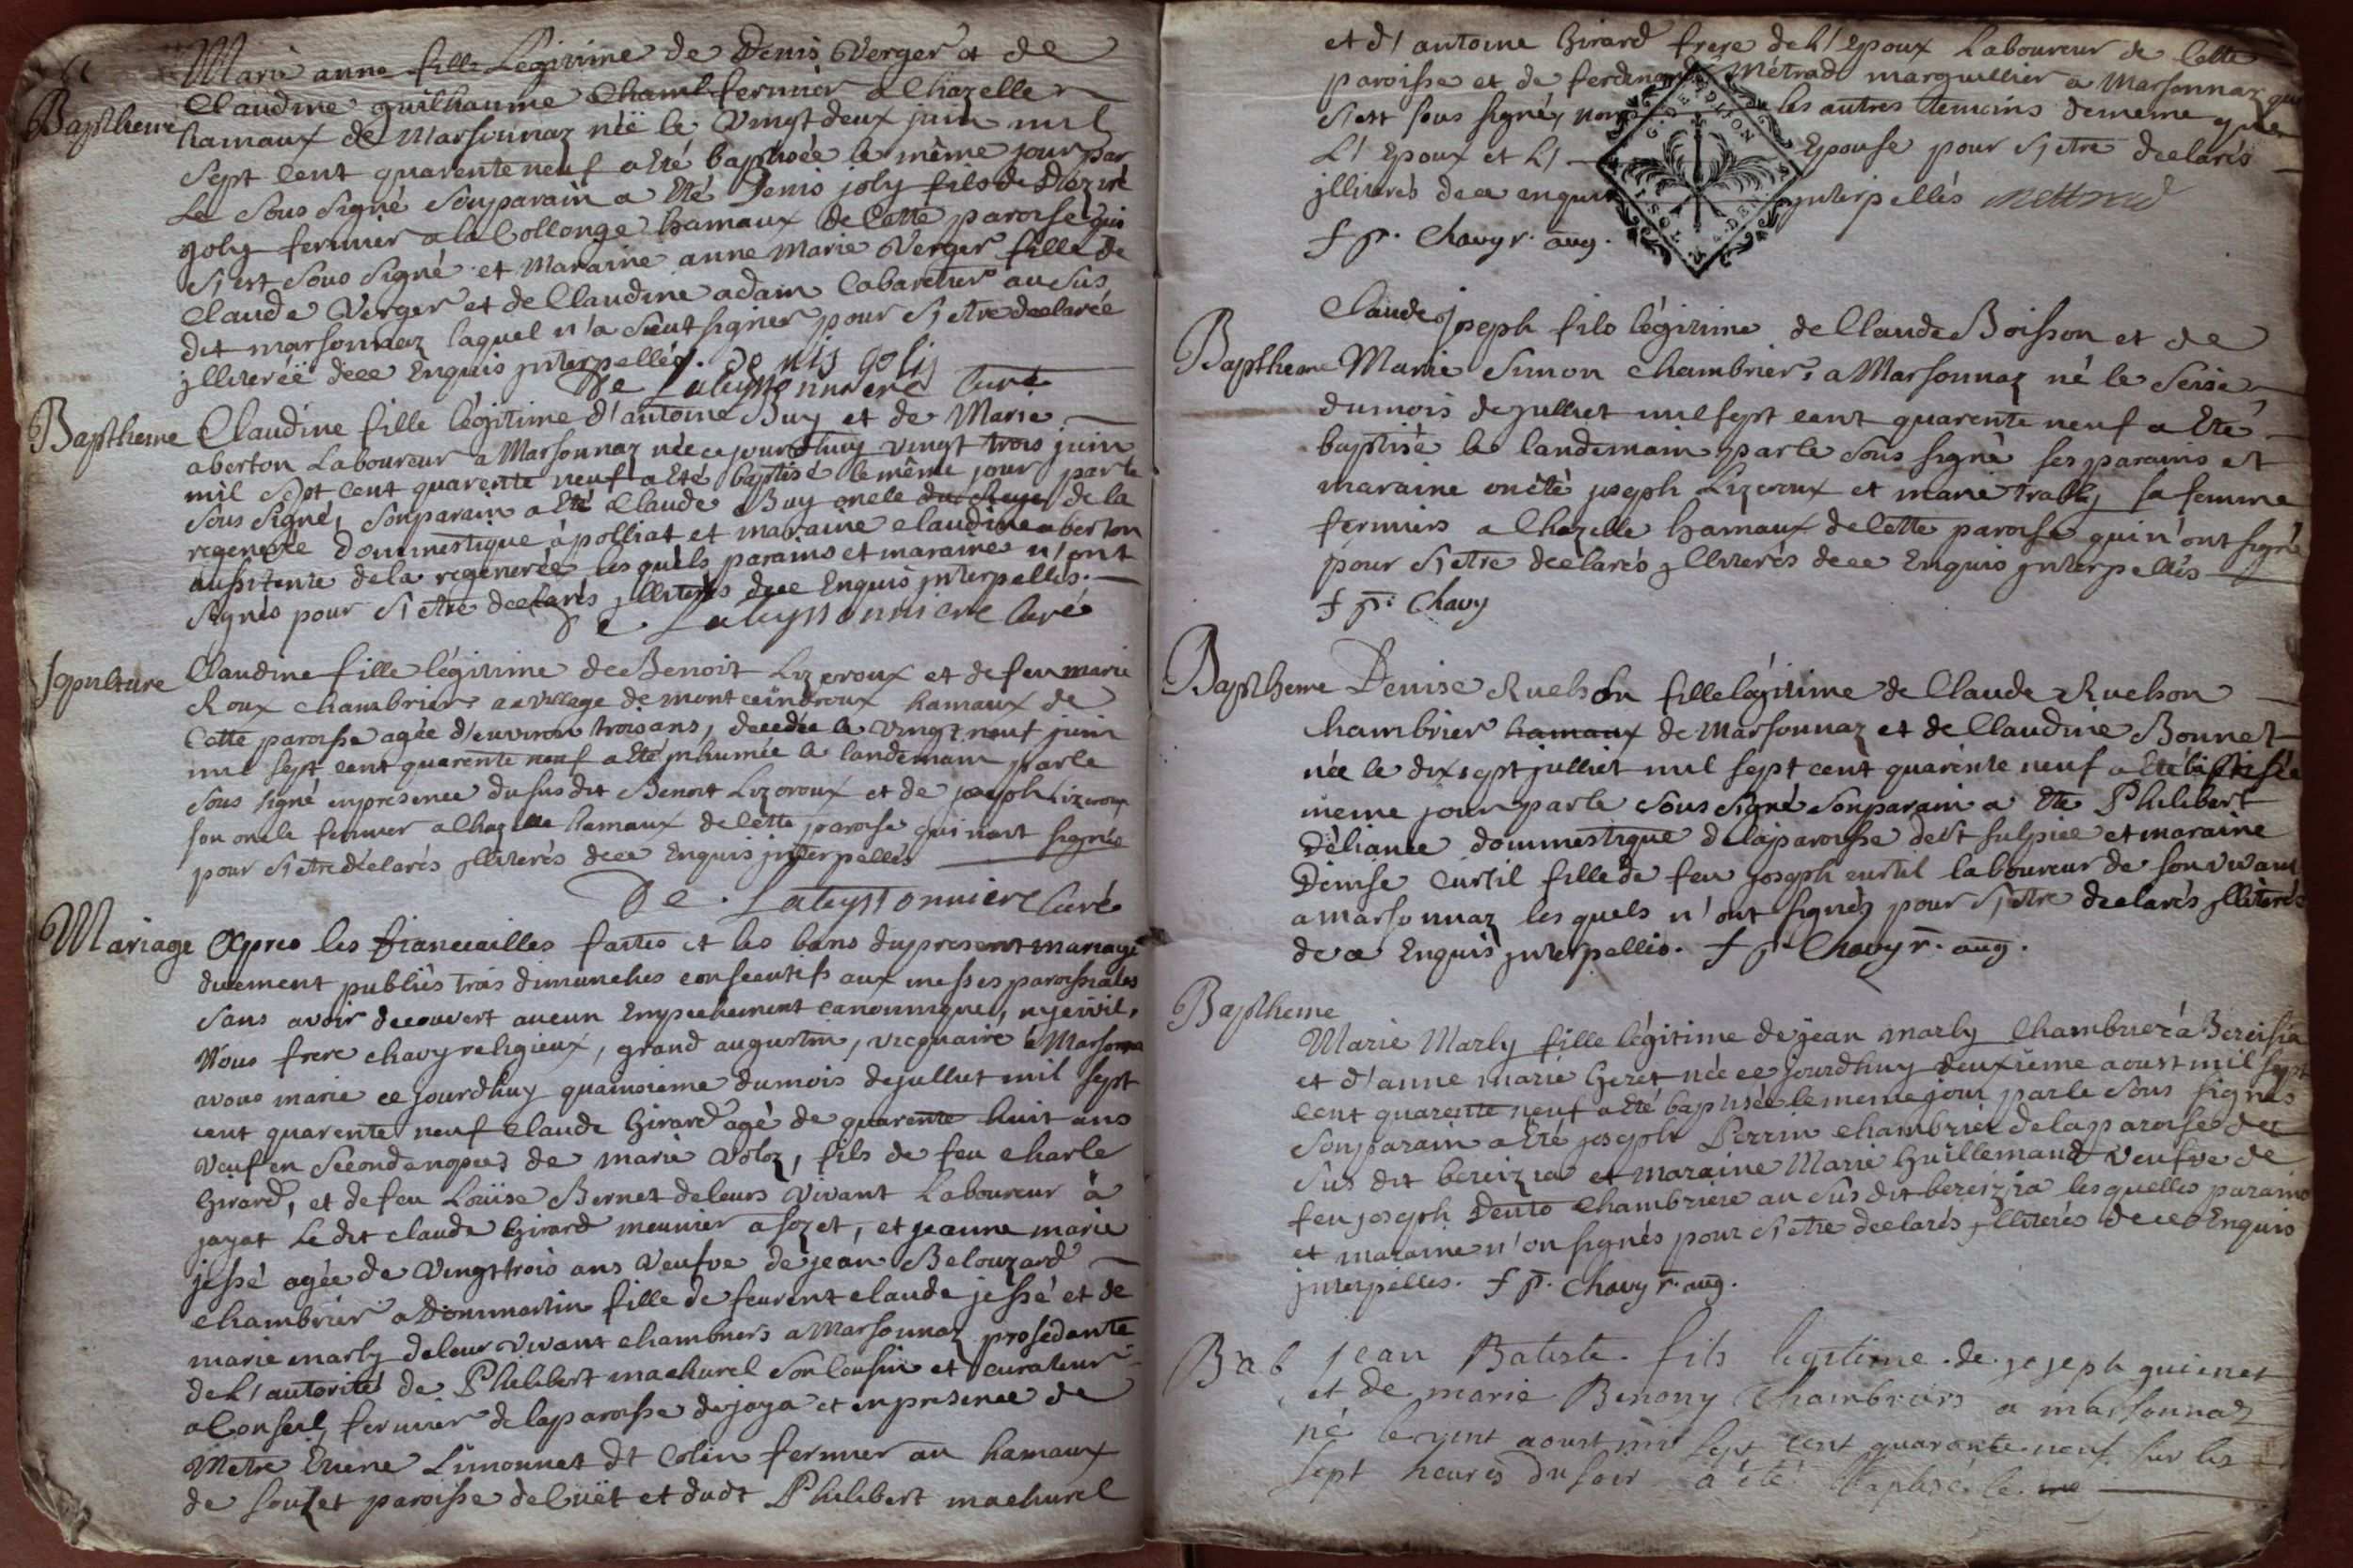 Baptheme
Marie anne fille Légitime de Denis Verger et de
Claudine guilhaume fermier a Chazelle
hamaux de Marsonnaz née le Vingt deux juin mil
sept cent quarente neuf a Eté baptisée le même jour par
Le sous signé son parain a Eté Denis joly fils de
joly fermier a la Collonge hamaux de Cette paroisse qui
s'est sous signé et Maraine anne Marie Verger fille de
Claude Verger et de Claudine adam Cabaretier au sus
dit marsonnaz laquel n'a signer pour s'etre declarée
jlliterée de ce Enquis jnterpellée. denis joly
De Lateyssonniere Curé
Baptheme
Claudine fille légitime d'antoine Buy et de Marie
aberton Laboureur a Marsonnaz née ce jourdhuy vingt trois juin
mil sept cent quarente neuf a Eté baptisé le même jour par le
sous signé, son parain a Eté Claude Buy oncle de la
regenerée dommestique à polliat et maraine claudine aberton
aussi tente de la regenerée les quels parains et maraine n'ont
signés pour s'etre declarés jlliterés de ce Enquis jnterpellés.
De Lateyssonniere Curé
sepulture
Claudine fille légitime de Benoit Lizeroux et de feu marie
Roux chambrier au village de montceindroux hamaux de
Cette paroisse agée d'environ trois ans, decedée le vingt neuf juin
mil sept cent quarente neuf a Eté jnhumée le landemain par le
sous signé en presence du susdit Benoit Lizeroux et de joseph Lizeroux
son oncle fermier a Chazelle hamaux de Cette paroisse qui n'ont signés
pour s'etre déclarés jlliterés de ce Enquis jnterpellés
De. Lateyssonniere Curé
Mariage
Apres les fiancailles faites et les bans du present mariage
duement publiés trois dimanches consecutifs aux messes paroissiales
sans avoir decouvert aucun Empechement canonnique, ny civil,
Nous frere chavy religieux, grand augustin, vicquaire à Marsonnaz
avons marié ce jourdhuy quatorzieme du mois de julliet mil sept
cent quarente neuf claude Girard agé de quarente huit ans
veuf en seconde nopces de marie Voloz, fils de feu charle
Girard, et de feu Loüise Bernet de leurs vivant Laboureur à
jayat Le dit claude Girard meunier a sozet, et jeanne marie
jessé agée de vingt trois ans veufve de jean Belouzard
chambrier a Dommartin fille de feurent claude jessé et de
marie marly de leur vivant chambriers a Marsonnaz prosedante
de l'autorité de Philibert machurel son cousin et curateur
a Conseil, fermier de la paroisse de jaya et en presence de
Metre Limonnet dt Colin fermier au hamaux
de souzet paroisse de Cüet et dudt Philibert machurel
et d'antoine Girard frere de L'epoux Laboureur de Cette
paroisse et de ferdinand Métrad marguillier a Marsonnaz qui
s'est sous signé, non les autres temoins de meme que
L'Epoux et L' Epouse pour s'etre declarés
jlliterés de ce enquis jnterpellés mettrad
f p. Chavy r. aug.
Baptheme
Claude joseph fils légitime de Claude Boisson et de
Marie Simon chambrier, a Marsonnaz né le seise
du mois de julliet mil sept cent quarente neuf a Eté
baptisé le landemain par le sous signé ses parains et
maraine on été joseph Lizeroux et marie trably sa femme
fermiers a Chazelle hamaux de Cette paroisse qui n'ont signé
pour s'etre declarés jlliterés de ce Enquis jnterpellés
f p. Chavy
Baptheme
Denise Ruchon fille légitime de Claude Ruchon
chambrier hamaux de Marsonnaz et de Claudine Bonnet
née le dix sept julliet mil sept cent quarente neuf a Eté baptisée
meme jour par le sous signé son parain a Eté Philibert
Déliance dommestique de la paroisse de st sulpice et maraine
Denise Curtil fille de feu joseph curtil laboureur de son vivant
a marsonnaz les quels n'ont signés pour s'etre declarés jlliterés
de ce Enquis jnterpellés. f p. Chavy r. aug.
Baptheme
Marie Marly fille légitime de jean marly Chambrier à Bereisia
et d'anne marie Geret née ce jourdhuy deuxieme aoust mil sept
cent quarente neuf a Eté baptisée le meme jour par le sous signés
son parain a Eté joseph Perrin chambrier de la paroisse du
sus dit bereizia et maraine Marie Guillemaud veufve de
feu joseph Dento Chambriere au sus dit bereizia lesquelles parains
et maraine n'on signés pour s'etre declarés jlliterés de ce Enquis
jnterpelles. f p. Chavy r. aug.
Bab
jean Batiste. fils legitime. de. joseph guienet
et de marie Benony Chambriers a marsonnaz
né le vint aoust mil sept cent quarante neuf sur les
sept heures du soir a été Baptisé le